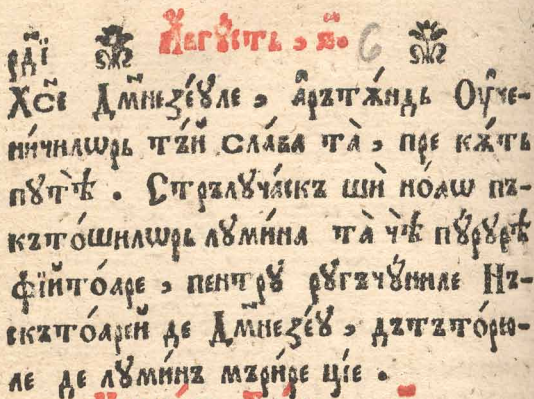 рдⷭ҇ї
А҆́ѵгꙋстъ, ѕ҃. 6
Хс҃е Дм҃незе́ꙋле, а҆рътѫ́ндь Оу҆че-
ни́чилѡрь тъ́й сла́ва та̀, пре кѫ́ть
пꙋтѐѣ . Стрълꙋча́скъ шѝ но́аѡ пъ-
къто́шилѡрь лꙋми́на та̀ ч̀ѣ пꙋ́рꙋрѣ
фїйто́аре, пентрꙋ́ рꙋгъчю́ниле Нъ-
скъто́арей де Дм҃незе́ꙋ, дътъто́рю-
ле де лꙋми́нъ мъри́ре цїе .